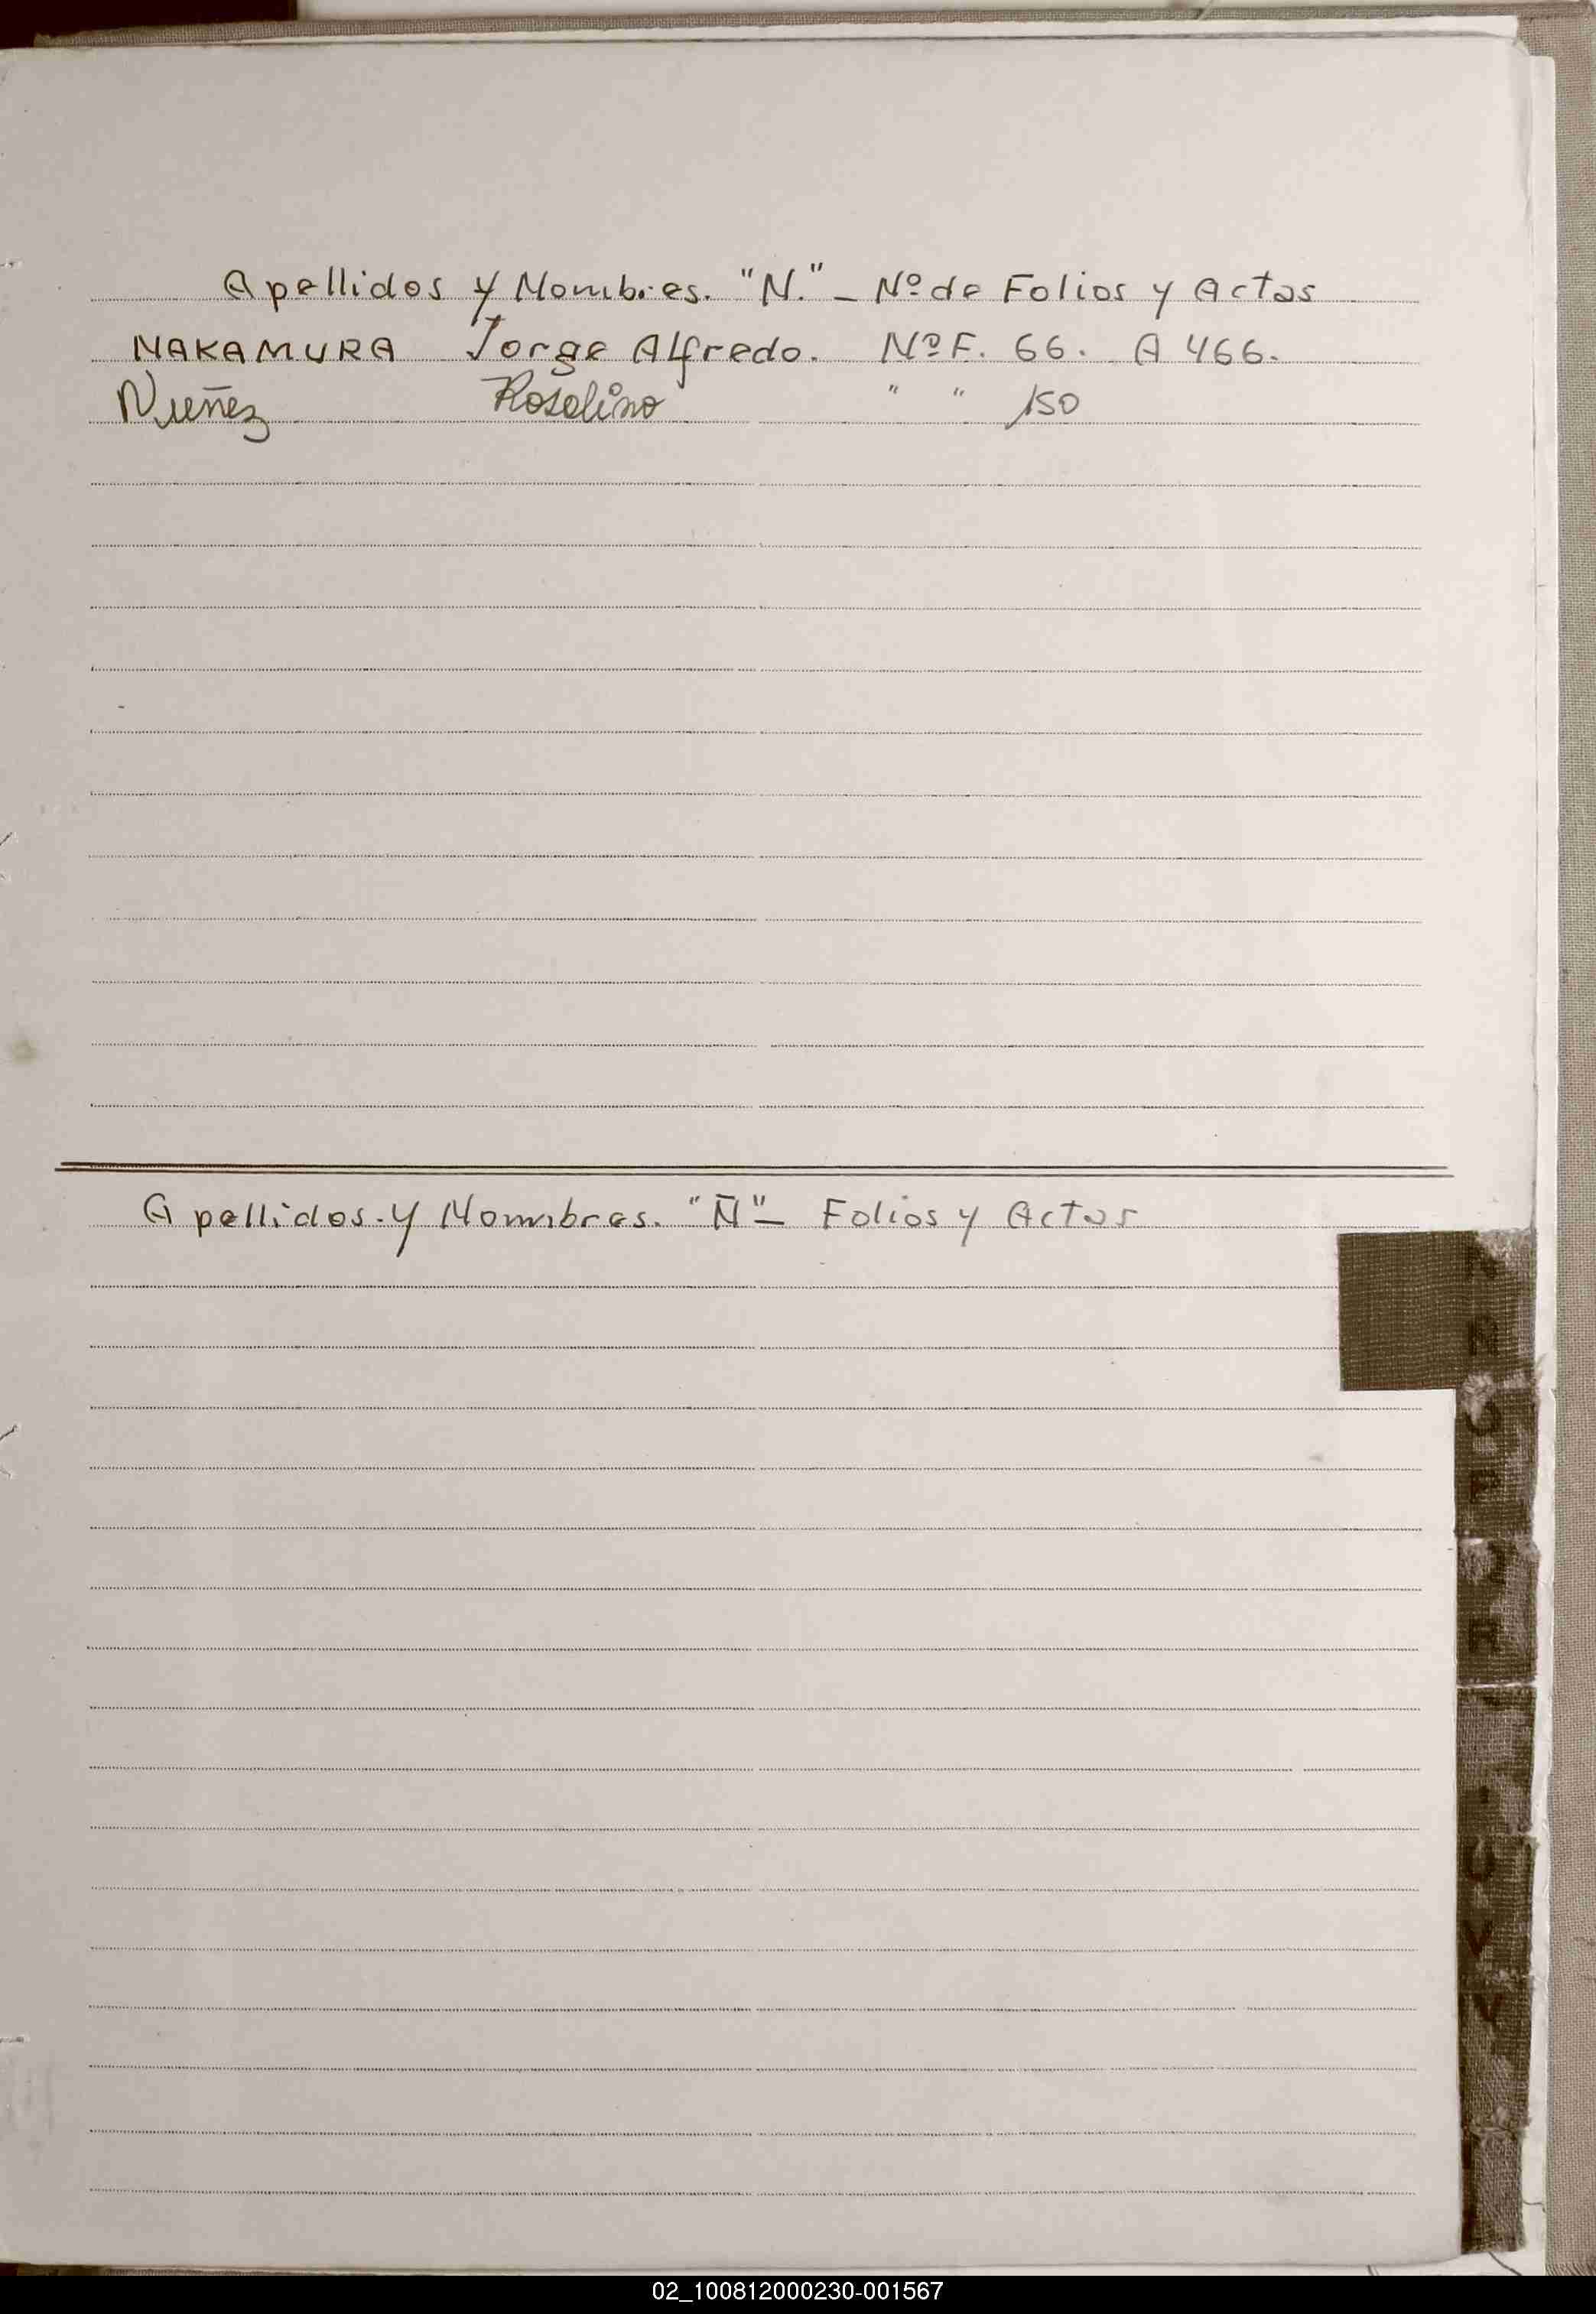 Apellidos y Nombres. "N." - Nº de Folios y Actas
NAKAMURA Jorge Alfredo. Nº F. 66. A 466.
Nuñez Rosolino " " 150
Apellidos y Nombres. "Ñ" - Folios y Actas
N
Ñ
O
P
Q
R
U
V
02_100812000230-001567